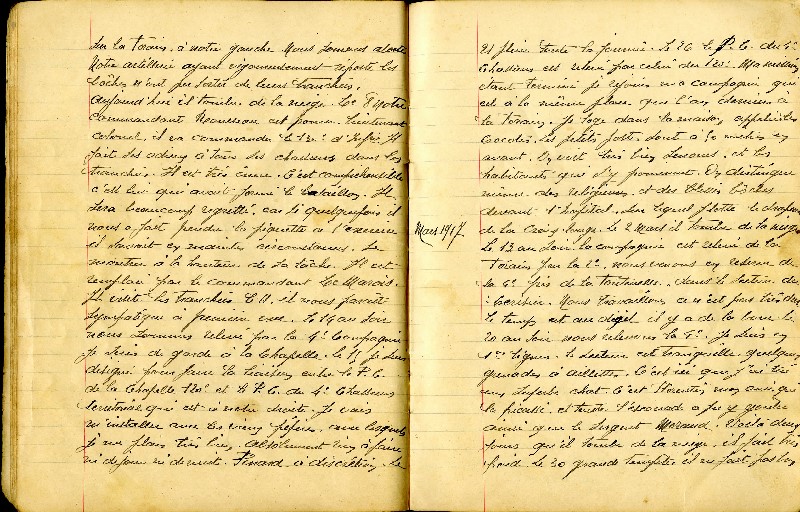 de la Forain. à notre gauche nous sommes alerte
Notre artillerie ayant vigoureusement riposté les
bôches n'ont pu sortir de leurs tranchées.
Aujourd'hui il tombe de la neige. Le 8 Notre
commandant Rousseau est promu lieutenant
colonel, il va commander le 120e d'Infie. Il
fait ses adieux à tous ses chasseurs dans les
tranchées. Il est très ému. C'est compréhensible
c'est lui qui avait formé le bataillon. Il
sera beaucoup regretté, car si quelquefois il
nous a fait prendre la piquette à l'exercice
il savait en maintes circonstances. Se
montrer à la hauteur de sa tâche. Il est
remplacé par le commandant Le Marois.
Il visite les tranchées le 11. il nous parait
sympathique à première vue. Le 14 au soir
nous sommes relevé par la 4e Compagnie
Je suis de garde à la Chapelle. le 17 je suis
désigné pour faire la liaison entre le P.C.
de la Chapelle 120e et le P.C. du 4e Chasseurs
territorial qui est à notre droite. Je vais
m'installer avec les vieux pépères, avec lesquels
je me plais très bien, absolument rien à faire
ni de jour ni de nuit. Pinard à discrétion. Le
21 pluie toute la journée. Le 26 le P.C. du 4e
Chasseurs est relevé par celui du 120e. Ma mission
étant terminée je rejoins ma compagnie qui
est à la même place que l'an dernier à
la Forain. Je loge dans la maison appelée les
Cocotes. Les petits postes sont à 50 mètres en
avant. On voit très bien Senones. et les
habitants qui s'y promènent. On distingue
même des religieuses, et des blessés bôches
devant l'hôpital. sur lequel flotte le drapeau
de la Croix Rouge. Le 2 Mars il tombe de la neige
Mars 1917
le 12 au soir la compagnie est relevé de la
Forain par la 2e, nous venons en réserve de
la 6e près de la Fontenelle. dans le secteur de
Nous travaillons ce n'est pas très dur
le temps est au dégel il y a de la boue le
20 au soir nous relevons la 4e. Je suis en
1ère lignes. Le Secteur est tranquille quelques
grenades à ailettes. C'est ici que j'ai tué
un superbe chat. C'est Florentin mon ami qui
le fricasse et toute l'escouade a pu y goûter
ainsi que le Sergent Moraud. Voilà deux
jours qu'il tombe de la neige, il fait très
froid. Le 30 grande tempête il ne fait pas bon